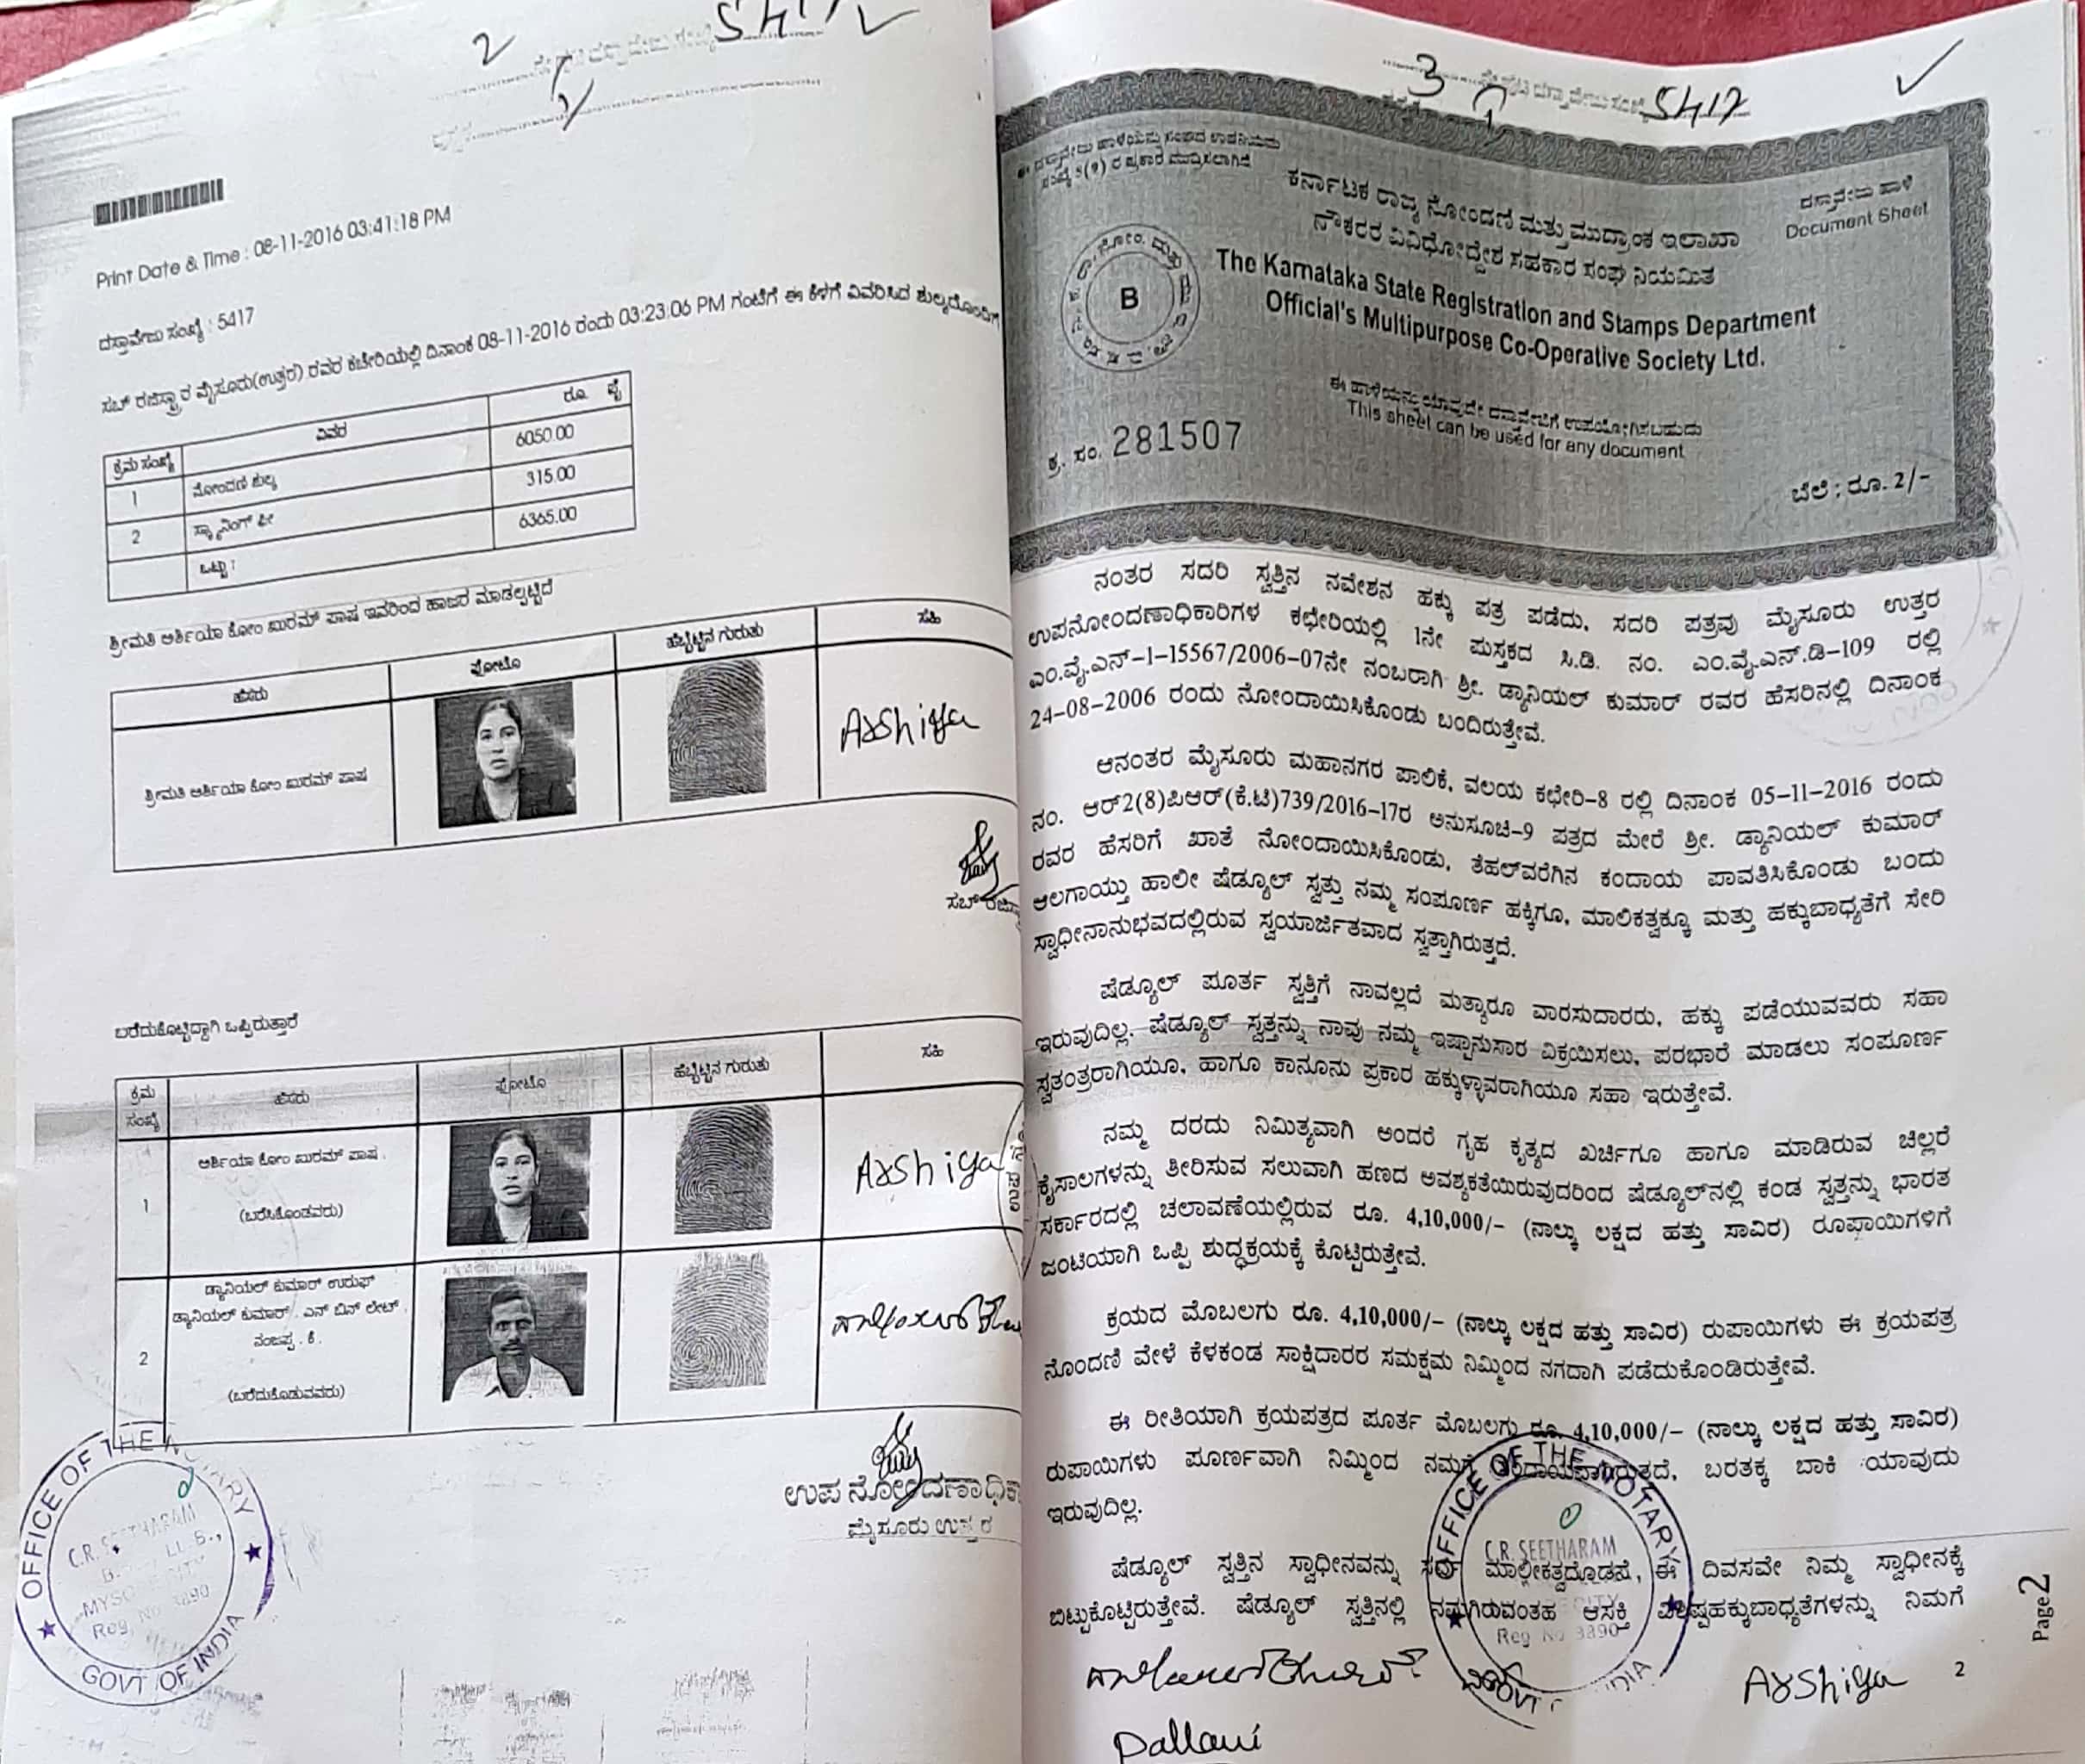 2
5417
Print Date & Time : 08-11-2016 03:41:18 PM
ದಸ್ತಾವೇಜು ಸಂಖ್ಯೆ : 5417
ಸಬ್ ರಜಿಸ್ಟ್ರಾರ ಮೈಸೂರು(ಉತ್ತರ) ರವರ ಕಚೇರಿಯಲ್ಲಿ ದಿನಾಂಕ 08-11-2016 ರಂದು 03:23:06 PM ಗಂಟೆಗೆ ಈ ಕೆಳಗೆ ವಿವರಿಸಿದ ಶುಲ್ಕದೊಂದಿಗೆ
ಕ್ರಮ ಸಂಖ್ಯೆ ವಿವರ ರೂ. ಪೈ
1 ನೋಂದಣಿ ಶುಲ್ಕ 6050.00
2 ಸ್ಕ್ಯಾನಿಂಗ್ ಫೀ 315.00
ಒಟ್ಟು : 6365.00
ಶ್ರೀಮತಿ ಅರ್ಶಿಯಾ ಕೋಂ ಖುರಮ್ ಪಾಷ ಇವರಿಂದ ಹಾಜರ ಮಾಡಲ್ಪಟ್ಟಿದೆ
ಹೆಸರು ಫೋಟೊ ಹೆಬ್ಬೆಟ್ಟಿನ ಗುರುತು ಸಹಿ
ಶ್ರೀಮತಿ ಅರ್ಶಿಯಾ ಕೋಂ ಖುರಮ್ ಪಾಷ Arshiya
ಬರೆದುಕೊಟ್ಟಿದ್ದಾಗಿ ಒಪ್ಪಿರುತ್ತಾರೆ
ಕ್ರಮ ಸಂಖ್ಯೆ ಹೆಸರು ಫೋಟೊ ಹೆಬ್ಬೆಟ್ಟಿನ ಗುರುತು ಸಹಿ
1 ಅರ್ಶಿಯಾ ಕೋಂ ಖುರಮ್ ಪಾಷ . Arshiya
(ಬರೆಸಿಕೊಂಡವರು)
ಡ್ಯಾನಿಯಲ್ ಕುಮಾರ್ ಉರುಫ್
ಡ್ಯಾನಿಯಲ್ ಕುಮಾರ್ . ಎನ್ ಬಿನ್ ಲೇಟ್ .
ನಂಜಪ್ಪ . ಕೆ .
2
(ಬರೆದುಕೊಡುವವರು)
ಉಪ ನೋಂದಣಾಧಿಕಾ
ಮೈಸೂರು ಉತ್ತರ
OFFICE OF THE NOTARY
C.R. SEETHARAM
Reg. No 3890
GOVT OF INDIA
3
5417
ಈ ದಸ್ತಾವೇಜು ಹಾಳೆಯನ್ನು ಸಂಘದ ಉಪನಿಯಮ
ಸಂಖ್ಯೆ 5(9) ರ ಪ್ರಕಾರ ಮುದ್ರಿಸಲಾಗಿದೆ
ದಸ್ತಾವೇಜು ಹಾಳೆ
Document Sheet
ಕರ್ನಾಟಕ ರಾಜ್ಯ ನೋಂದಣಿ ಮತ್ತು ಮುದ್ರಾಂಕ ಇಲಾಖಾ
ನೌಕರರ ವಿವಿಧೋದ್ದೇಶ ಸಹಕಾರ ಸಂಘ ನಿಯಮಿತ
B
The Karnataka State Registration and Stamps Department
Official's Multipurpose Co-Operative Society Ltd.
ಈ ಹಾಳೆಯನ್ನು ಯಾವುದೇ ದಸ್ತಾವೇಜಿಗೆ ಉಪಯೋಗಿಸಬಹುದು
This sheet can be used for any document
ಕ್ರ. ಸಂ. 281507
ಬೆಲೆ : ರೂ. 2/-
ನಂತರ ಸದರಿ ಸ್ವತ್ತಿನ ನವೇಶನ ಹಕ್ಕು ಪತ್ರ ಪಡೆದು, ಸದರಿ ಪತ್ರವು ಮೈಸೂರು ಉತ್ತರ
ಉಪನೋಂದಣಾಧಿಕಾರಿಗಳ ಕಛೇರಿಯಲ್ಲಿ 1ನೇ ಪುಸ್ತಕದ ಸಿ.ಡಿ. ನಂ. ಎಂ.ವೈ.ಎನ್.ಡಿ-109 ರಲ್ಲಿ
ಎಂ.ವೈ.ಎನ್-1-15567/2006-07ನೇ ನಂಬರಾಗಿ ಶ್ರೀ. ಡ್ಯಾನಿಯಲ್ ಕುಮಾರ್ ರವರ ಹೆಸರಿನಲ್ಲಿ ದಿನಾಂಕ
24-08-2006 ರಂದು ನೋಂದಾಯಿಸಿಕೊಂಡು ಬಂದಿರುತ್ತೇವೆ.
ಆನಂತರ ಮೈಸೂರು ಮಹಾನಗರ ಪಾಲಿಕೆ, ವಲಯ ಕಛೇರಿ-8 ರಲ್ಲಿ ದಿನಾಂಕ 05-11-2016 ರಂದು
ನಂ. ಆರ್2(8)ಪಿಆರ್(ಕೆ.ಟಿ)739/2016-17ರ ಅನುಸೂಚಿ-9 ಪತ್ರದ ಮೇರೆ ಶ್ರೀ. ಡ್ಯಾನಿಯಲ್ ಕುಮಾರ್
ರವರ ಹೆಸರಿಗೆ ಖಾತೆ ನೋಂದಾಯಿಸಿಕೊಂಡು, ತೆಹಲ್‌ವರೆಗಿನ ಕಂದಾಯ ಪಾವತಿಸಿಕೊಂಡು ಬಂದು
ಆಲಗಾಯ್ತು ಹಾಲೀ ಷೆಡ್ಯೂಲ್ ಸ್ವತ್ತು ನಮ್ಮ ಸಂಪೂರ್ಣ ಹಕ್ಕಿಗೂ, ಮಾಲಿಕತ್ವಕ್ಕೂ ಮತ್ತು ಹಕ್ಕುಬಾಧ್ಯತೆಗೆ ಸೇರಿ
ಸ್ವಾಧೀನಾನುಭವದಲ್ಲಿರುವ ಸ್ವಯಾರ್ಜಿತವಾದ ಸ್ವತ್ತಾಗಿರುತ್ತದೆ.
ಷೆಡ್ಯೂಲ್ ಪೂರ್ತ ಸ್ವತ್ತಿಗೆ ನಾವಲ್ಲದೆ ಮತ್ಯಾರೂ ವಾರಸುದಾರರು, ಹಕ್ಕು ಪಡೆಯುವವರು ಸಹಾ
ಇರುವುದಿಲ್ಲ. ಷೆಡ್ಯೂಲ್ ಸ್ವತ್ತನ್ನು ನಾವು ನಮ್ಮ ಇಷ್ಟಾನುಸಾರ ವಿಕ್ರಯಿಸಲು, ಪರಭಾರೆ ಮಾಡಲು ಸಂಪೂರ್ಣ
ಸ್ವತಂತ್ರರಾಗಿಯೂ, ಹಾಗೂ ಕಾನೂನು ಪ್ರಕಾರ ಹಕ್ಕುಳ್ಳಾವರಾಗಿಯೂ ಸಹಾ ಇರುತ್ತೇವೆ.
ನಮ್ಮ ದರದು ನಿಮಿತ್ಯವಾಗಿ ಅಂದರೆ ಗೃಹ ಕೃತ್ಯದ ಖರ್ಚಿಗೂ ಹಾಗೂ ಮಾಡಿರುವ ಚಿಲ್ಲರೆ
ಕೈಸಾಲಗಳನ್ನು ತೀರಿಸುವ ಸಲುವಾಗಿ ಹಣದ ಅವಶ್ಯಕತೆಯಿರುವುದರಿಂದ ಷೆಡ್ಯೂಲ್‌ನಲ್ಲಿ ಕಂಡ ಸ್ವತ್ತನ್ನು ಭಾರತ
ಸರ್ಕಾರದಲ್ಲಿ ಚಲಾವಣೆಯಲ್ಲಿರುವ ರೂ. 4,10,000/- (ನಾಲ್ಕು ಲಕ್ಷದ ಹತ್ತು ಸಾವಿರ) ರೂಪಾಯಿಗಳಿಗೆ
ಜಂಟಿಯಾಗಿ ಒಪ್ಪಿ ಶುದ್ಧಕ್ರಯಕ್ಕೆ ಕೊಟ್ಟಿರುತ್ತೇವೆ.
ಕ್ರಯದ ಮೊಬಲಗು ರೂ. 4,10,000/- (ನಾಲ್ಕು ಲಕ್ಷದ ಹತ್ತು ಸಾವಿರ) ರುಪಾಯಿಗಳು ಈ ಕ್ರಯಪತ್ರ
ನೊಂದಣಿ ವೇಳೆ ಕೆಳಕಂಡ ಸಾಕ್ಷಿದಾರರ ಸಮಕ್ಷಮ ನಿಮ್ಮಿಂದ ನಗದಾಗಿ ಪಡೆದುಕೊಂಡಿರುತ್ತೇವೆ.
ಈ ರೀತಿಯಾಗಿ ಕ್ರಯಪತ್ರದ ಪೂರ್ತ ಮೊಬಲಗು ರೂ. 4,10,000/- (ನಾಲ್ಕು ಲಕ್ಷದ ಹತ್ತು ಸಾವಿರ)
ರುಪಾಯಿಗಳು ಪೂರ್ಣವಾಗಿ ನಿಮ್ಮಿಂದ ನಮಗೆ ಸಂದಾಯವಾಗಿರುತ್ತದೆ, ಬರತಕ್ಕ ಬಾಕಿ ಯಾವುದು
ಇರುವುದಿಲ್ಲ.
ಷೆಡ್ಯೂಲ್ ಸ್ವತ್ತಿನ ಸ್ವಾಧೀನವನ್ನು ಸರ್ವ ಮಾಲೀಕತ್ವದೊಡನೆ, ಈ ದಿವಸವೇ ನಿಮ್ಮ ಸ್ವಾಧೀನಕ್ಕೆ
ಬಿಟ್ಟುಕೊಟ್ಟಿರುತ್ತೇವೆ. ಷೆಡ್ಯೂಲ್ ಸ್ವತ್ತಿನಲ್ಲಿ ನಮಗಿರುವಂತಹ ಆಸಕ್ತಿ ವಿಶಿಷ್ಟಹಕ್ಕುಬಾಧ್ಯತೆಗಳನ್ನು ನಿಮಗೆ
OFFICE OF THE NOTARY
C.R. SEETHARAM
Reg No 3890
Arshiya 2
Pallavi
Page2